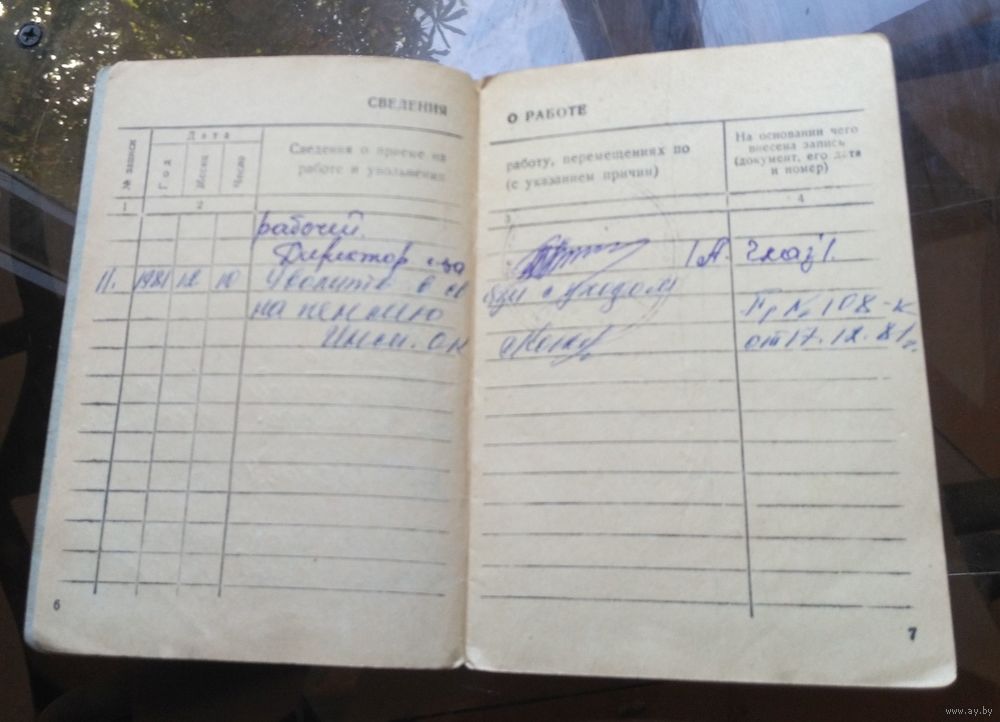 СВЕДЕНИЯ О РАБОТЕ
№ записи
Дата
Год
Месяц
Число
Сведения о приеме на
работе и увольнении
работу, перемещениях по
(с указанием причин)
На основании чего
внесена запись
(документ, его дата
и номер)
1 2 3 4
рабочий.
Директор
11. 1981 12 10 Уволить в св язи с уходом
на пенсию Пр № 108-к
Инсп. ок от 17.12.81г.
6
7
www.ay.by